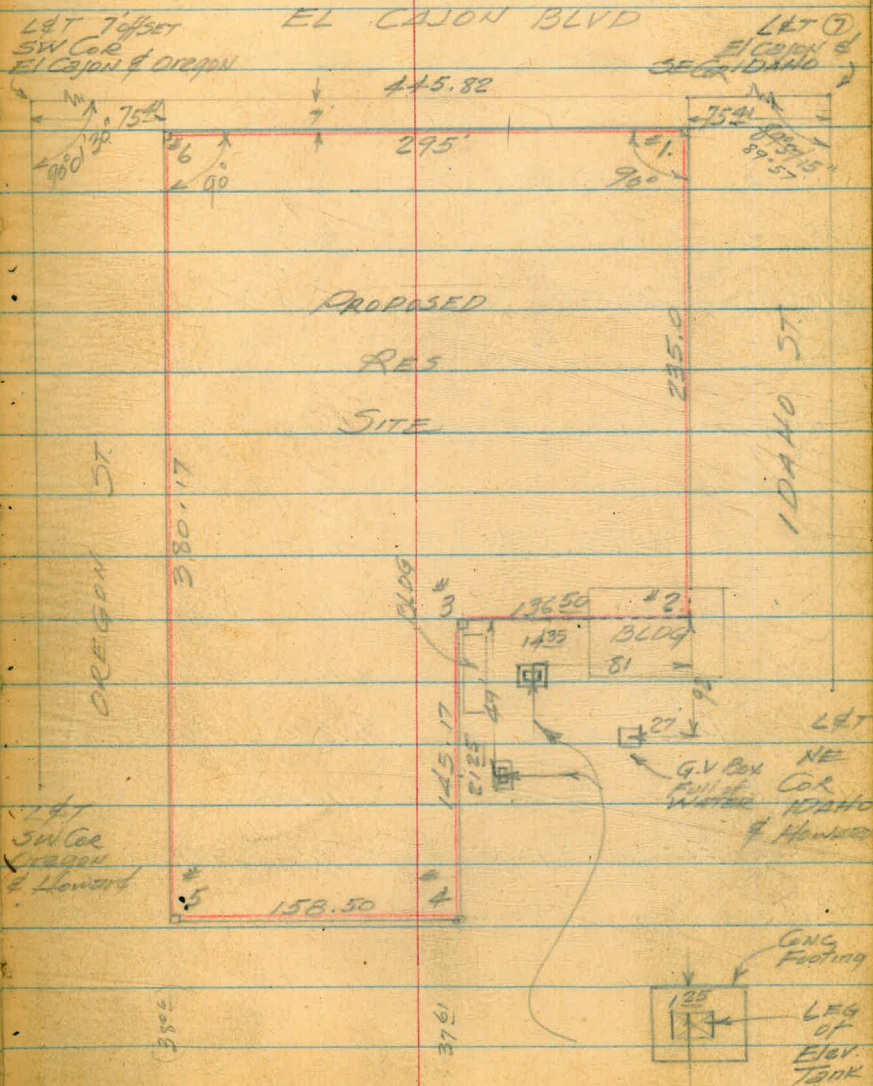 EL CAJON BLVD
L&T 7' offset
SW Cor
El Cajon & Oregon
L&T 7
El Cajon &
SE Cor IDAHO
445.82
7'
295'
75
90°01'30"
75
89°57'15"
89°57
#6
90°
#1
90°
PROPOSED
RES
SITE
235.0
380.17
OREGON ST.
IDAHO ST.
BLDG
#3
136.50
#2
14 35
BLDG
81
49'
145.17
21 25
27
G.V Box
Full of
WATER
L&T
NE
COR
IDAHO
& HOWARD
L&T
SW Cor
Oregon
& Howard
#5
158.50
#4
3761
CONC
Footing
1 25
LEG
OF
Elev.
Tank